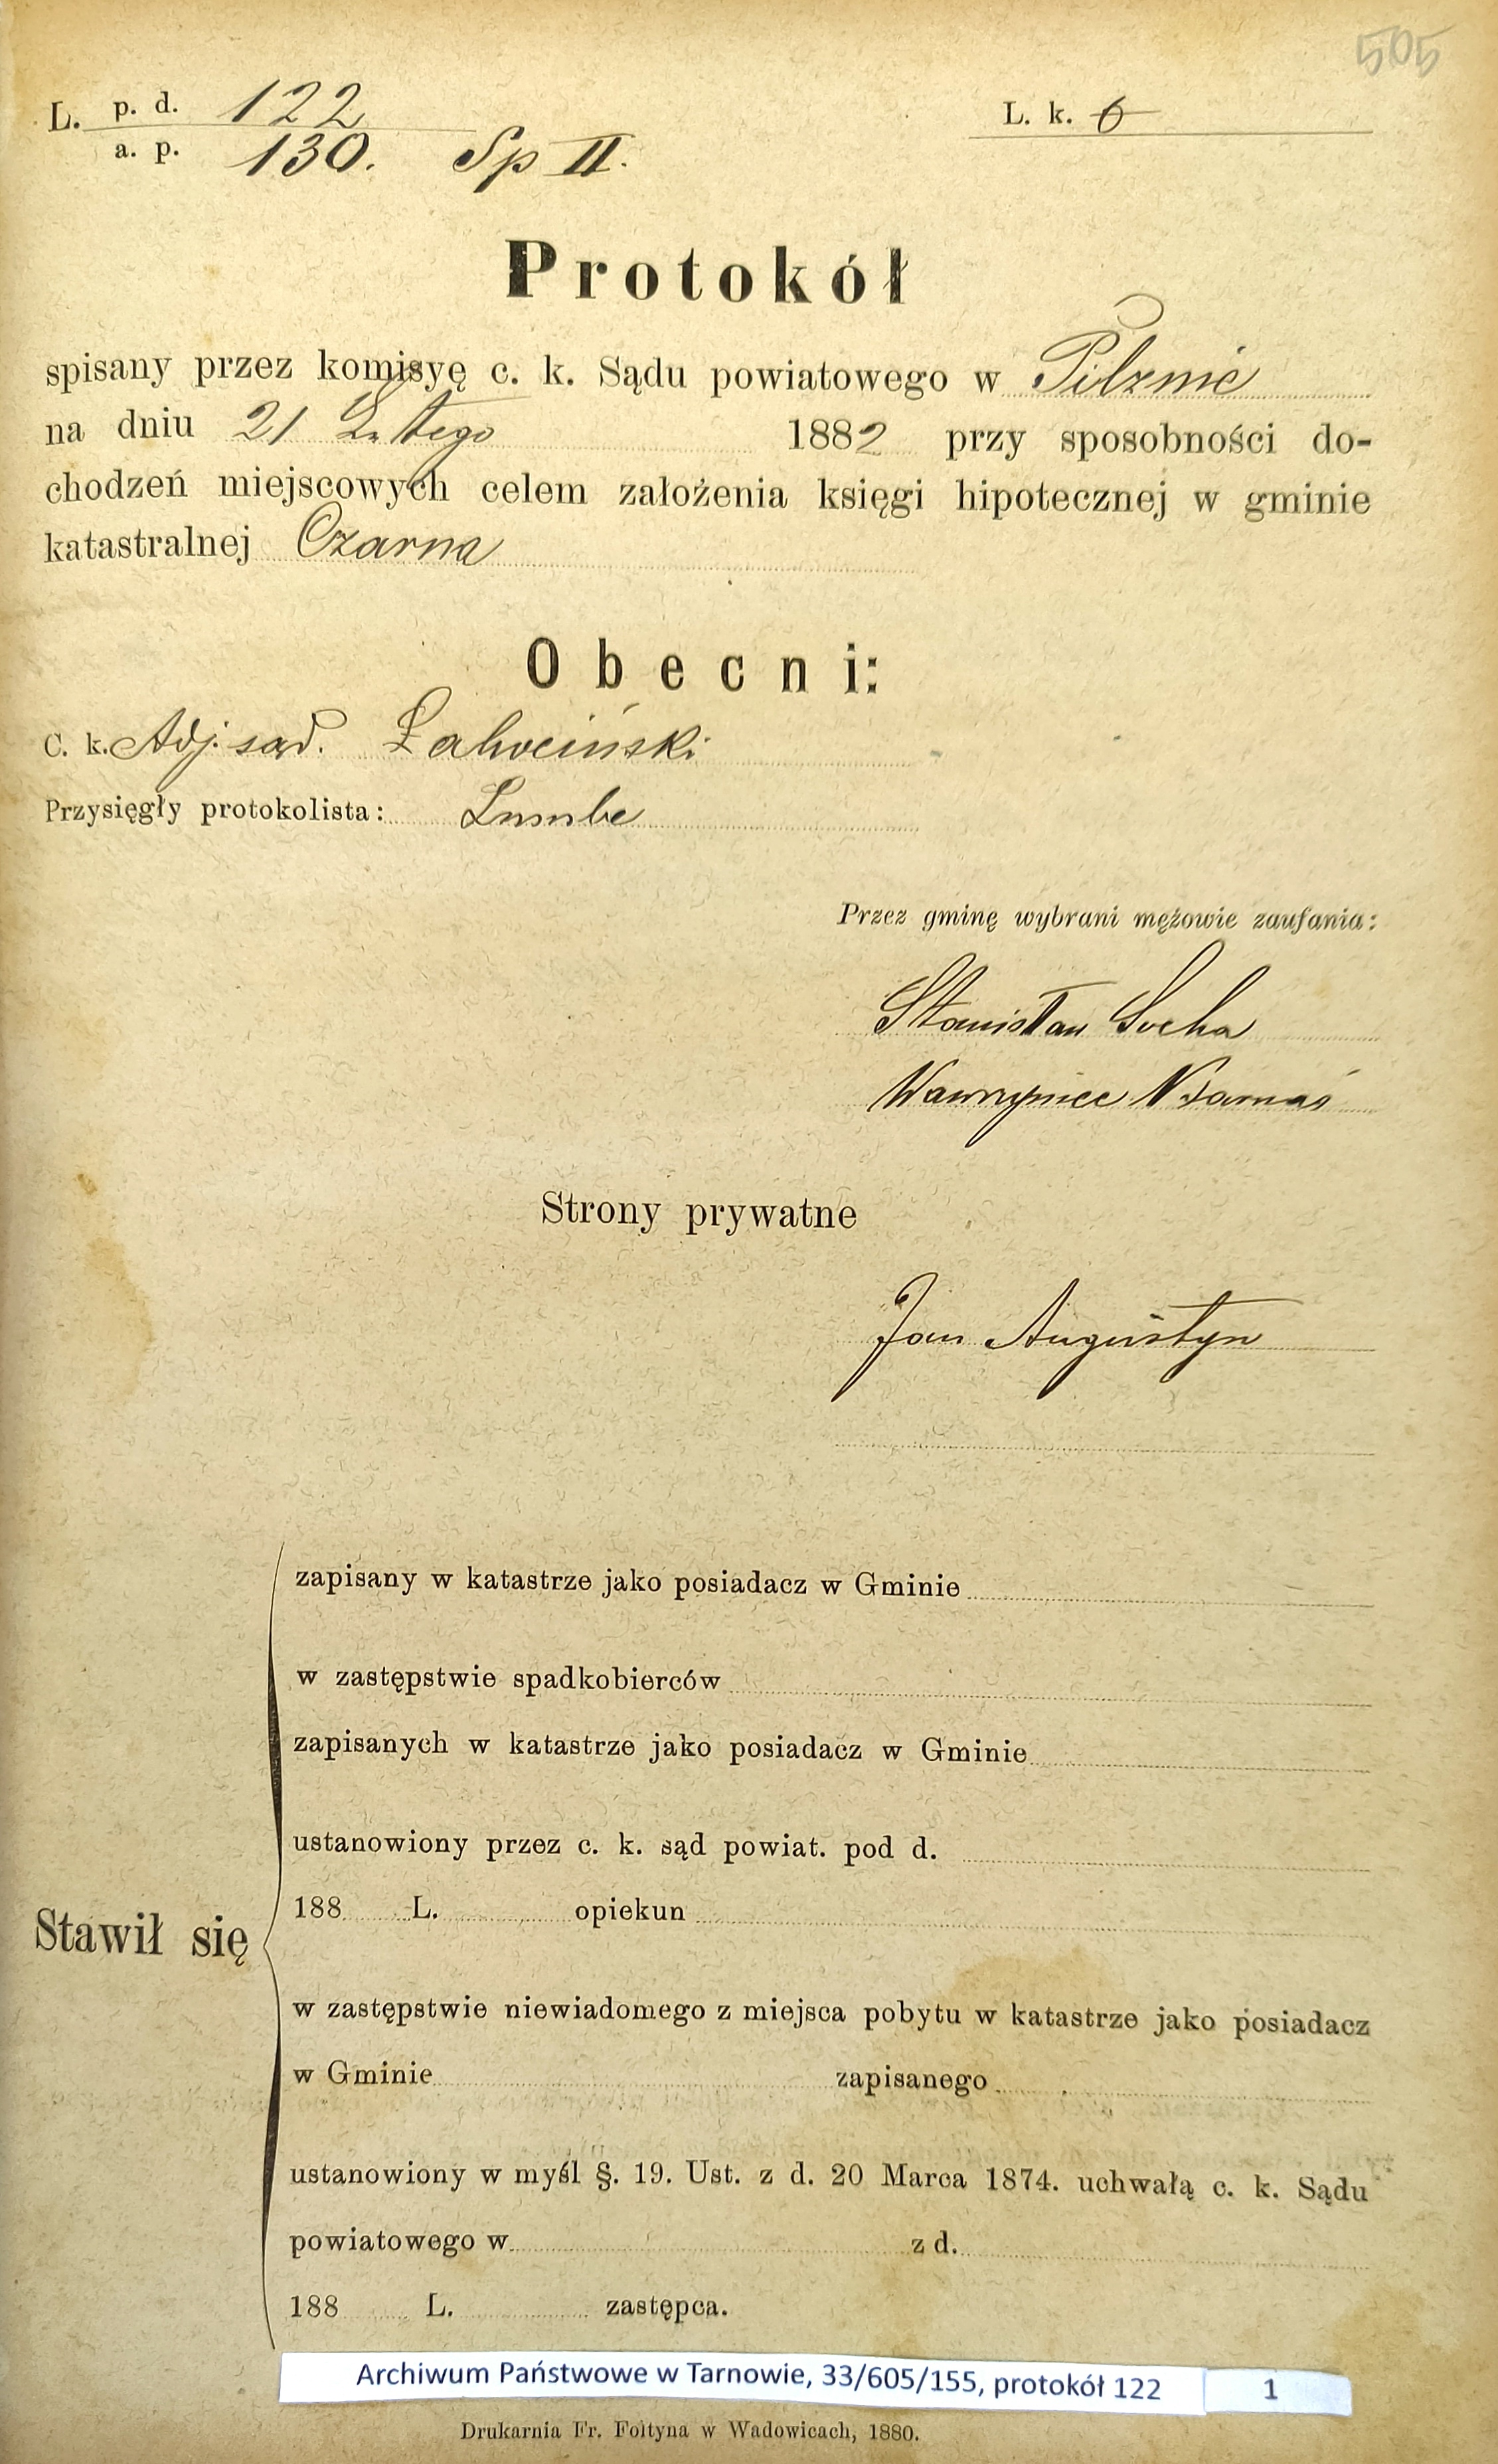 505
L. p. d. 122
a. p. 130. Sp II.
L. k. 6
Protokół
spisany przez komisyę c. k. Sądu powiatowego w Pilznie
na dniu 21 Lutego 1882 przy sposobności do-
chodzeń miejscowych celem założenia księgi hipotecznej w gminie
katastralnej Czarna
Obecni:
C. k. Adj. sąd.
Przysięgły protokolista:
Przez gminę wybrani mężowie zaufania:
Stanisław Socha
Wawrzyniec
Strony prywatne
Jan Augustyn
zapisany w katastrze jako posiadacz w Gminie
w zastępstwie spadkobierców
zapisanych w katastrze jako posiadacz w Gminie
ustanowiony przez c. k. sąd powiat. pod d.
188 L. opiekun
Stawił się
w zastępstwie niewiadomego z miejsca pobytu w katastrze jako posiadacz
w Gminie zapisanego
ustanowiony w myśl §. 19. Ust. z d. 20 Marca 1874. uchwałą c. k. Sądu
powiatowego w z d.
188 L. zastępca.
Archiwum Państwowe w Tarnowie, 33/605/155, protokół 122 1
Drukarnia Fr. Foltyna w Wadowicach, 1880.